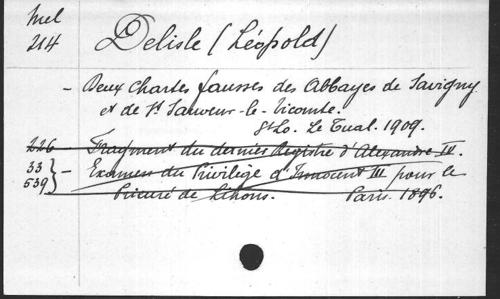 Mel
214
Delisle (Léopold)
- Deux Chartes fausses des Abbayes de Savigny
et de St Sauveur-le-Vicomte.
St Lo. Le Tual. 1909.
226 - Fragment du dernier Registre d'Alexandre IV.
33
539 } - Examen du Privilège d'Innocent III pour le
Prieuré de Lihons. Paris. 1896.